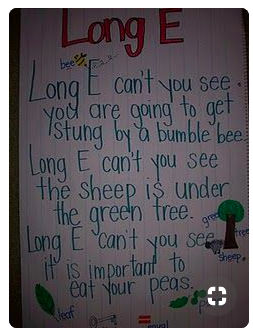 Long E
bee
Long E can't you see.
you are going to get
stung by a bumble bee.
Long E can't you see
the sheep is under
the green tree.
green tree
Long E can't you see
sheep
it is important to
eat your peas.
leaf
equal